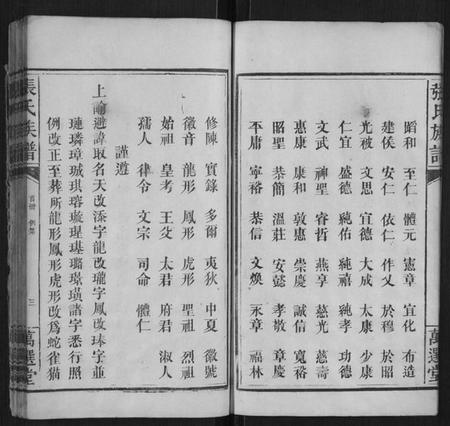 張氏族譜
萬選堂
韜和 至仁 體元 憲章 宣化 布造
建侯 安仁 依仁 作乂 於穆 於昭
光被 文思 宣德 大成 太康 少康
仁宜 盛德 純佑 純禧 純孝 功德
文武 神聖 睿哲 燕享 慈光 慈壽
惠康 康和 敦惠 崇慶 誠信 寬裕
昭聖 恭簡 溫莊 安懿 孝敬 章慶
平庸 寧裕 恭信 文煥 永章 福林
修陳 實錄 多爾 夷狄 中夏 徽號
徽音 龍形 鳳形 虎形 聖祖 烈祖
始祖 皇考 王父 太君 府君 淑人
孺人 律令 文宗 司命 體仁
謹遵
上諭避諱取名天改添字龍改瓏字鳳改琫字並
璉璘璋琥琪瑢璇瑆璂璐璟璜諸字悉行照
例改正至葬所龍形鳳形虎形改為蛇雀猫
張氏族譜
首冊 例案
三
萬選堂